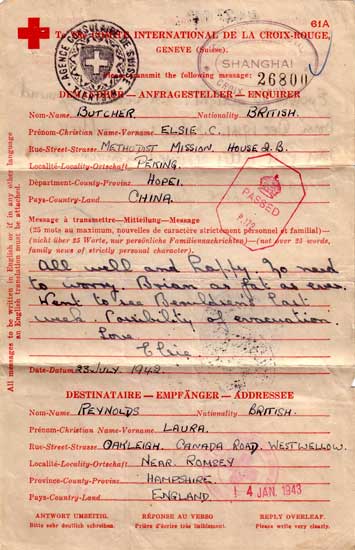 61A
To: LE COMITÉ INTERNATIONAL DE LA CROIX-ROUGE,
GENEVE (Suisse).
AGENCE CONSULAIRE DE SUISSE
SHANGHAI
Please transmit the following message:
26800
DEMANDEUR — ANFRAGESTELLER — ENQUIRER
Nom-Name BUTCHER Nationality BRITISH.
Prénom-Christian Name-Vorname ELSIE C.
Rue-Street-Strasse METHODIST MISSION, HOUSE 2.B.
Localité-Locality-Ortschaft PEKING.
Départment-County-Provinz HOPEI.
Pays-Country-Land CHINA.
PASSED
P.172
Message à transmettre—Mitteilung—Message
(25 mots au maximum, nouvelles de caractère strictement personnel et familial)—
(nicht über 25 Worte, nur persönliche Familiennachrichten)—(not over 25 words,
family news of strictly personal character).
All well and happy. No need
to worry. Brian as fat as ever.
Went to see last
week. Possibility of evacuation.
Love
Elsie
Date-Datum 23 JULY. 1942.
All messages to be written in English or if in any other language
an English translation must be attached.
DESTINATAIRE — EMPFÄNGER — ADDRESSEE
Nom-Name REYNOLDS Nationality BRITISH.
Prénom-Christian Name-Vorname LAURA.
Rue-Street-Strasse OAKLEIGH. CANADA ROAD. WESTWELLOW.
Localité-Locality-Ortschaft NEAR. ROMSEY
Province-County-Provinz HAMPSHIRE.
Pays-Country-Land ENGLAND
4 JAN. 1943
ANTWORT UMSEITIG. RÉPONSE AU VERSO REPLY OVERLEAF.
Bitte sehr deutlich schreiben. Prière d'écrire très lisiblement. Please write very clearly.